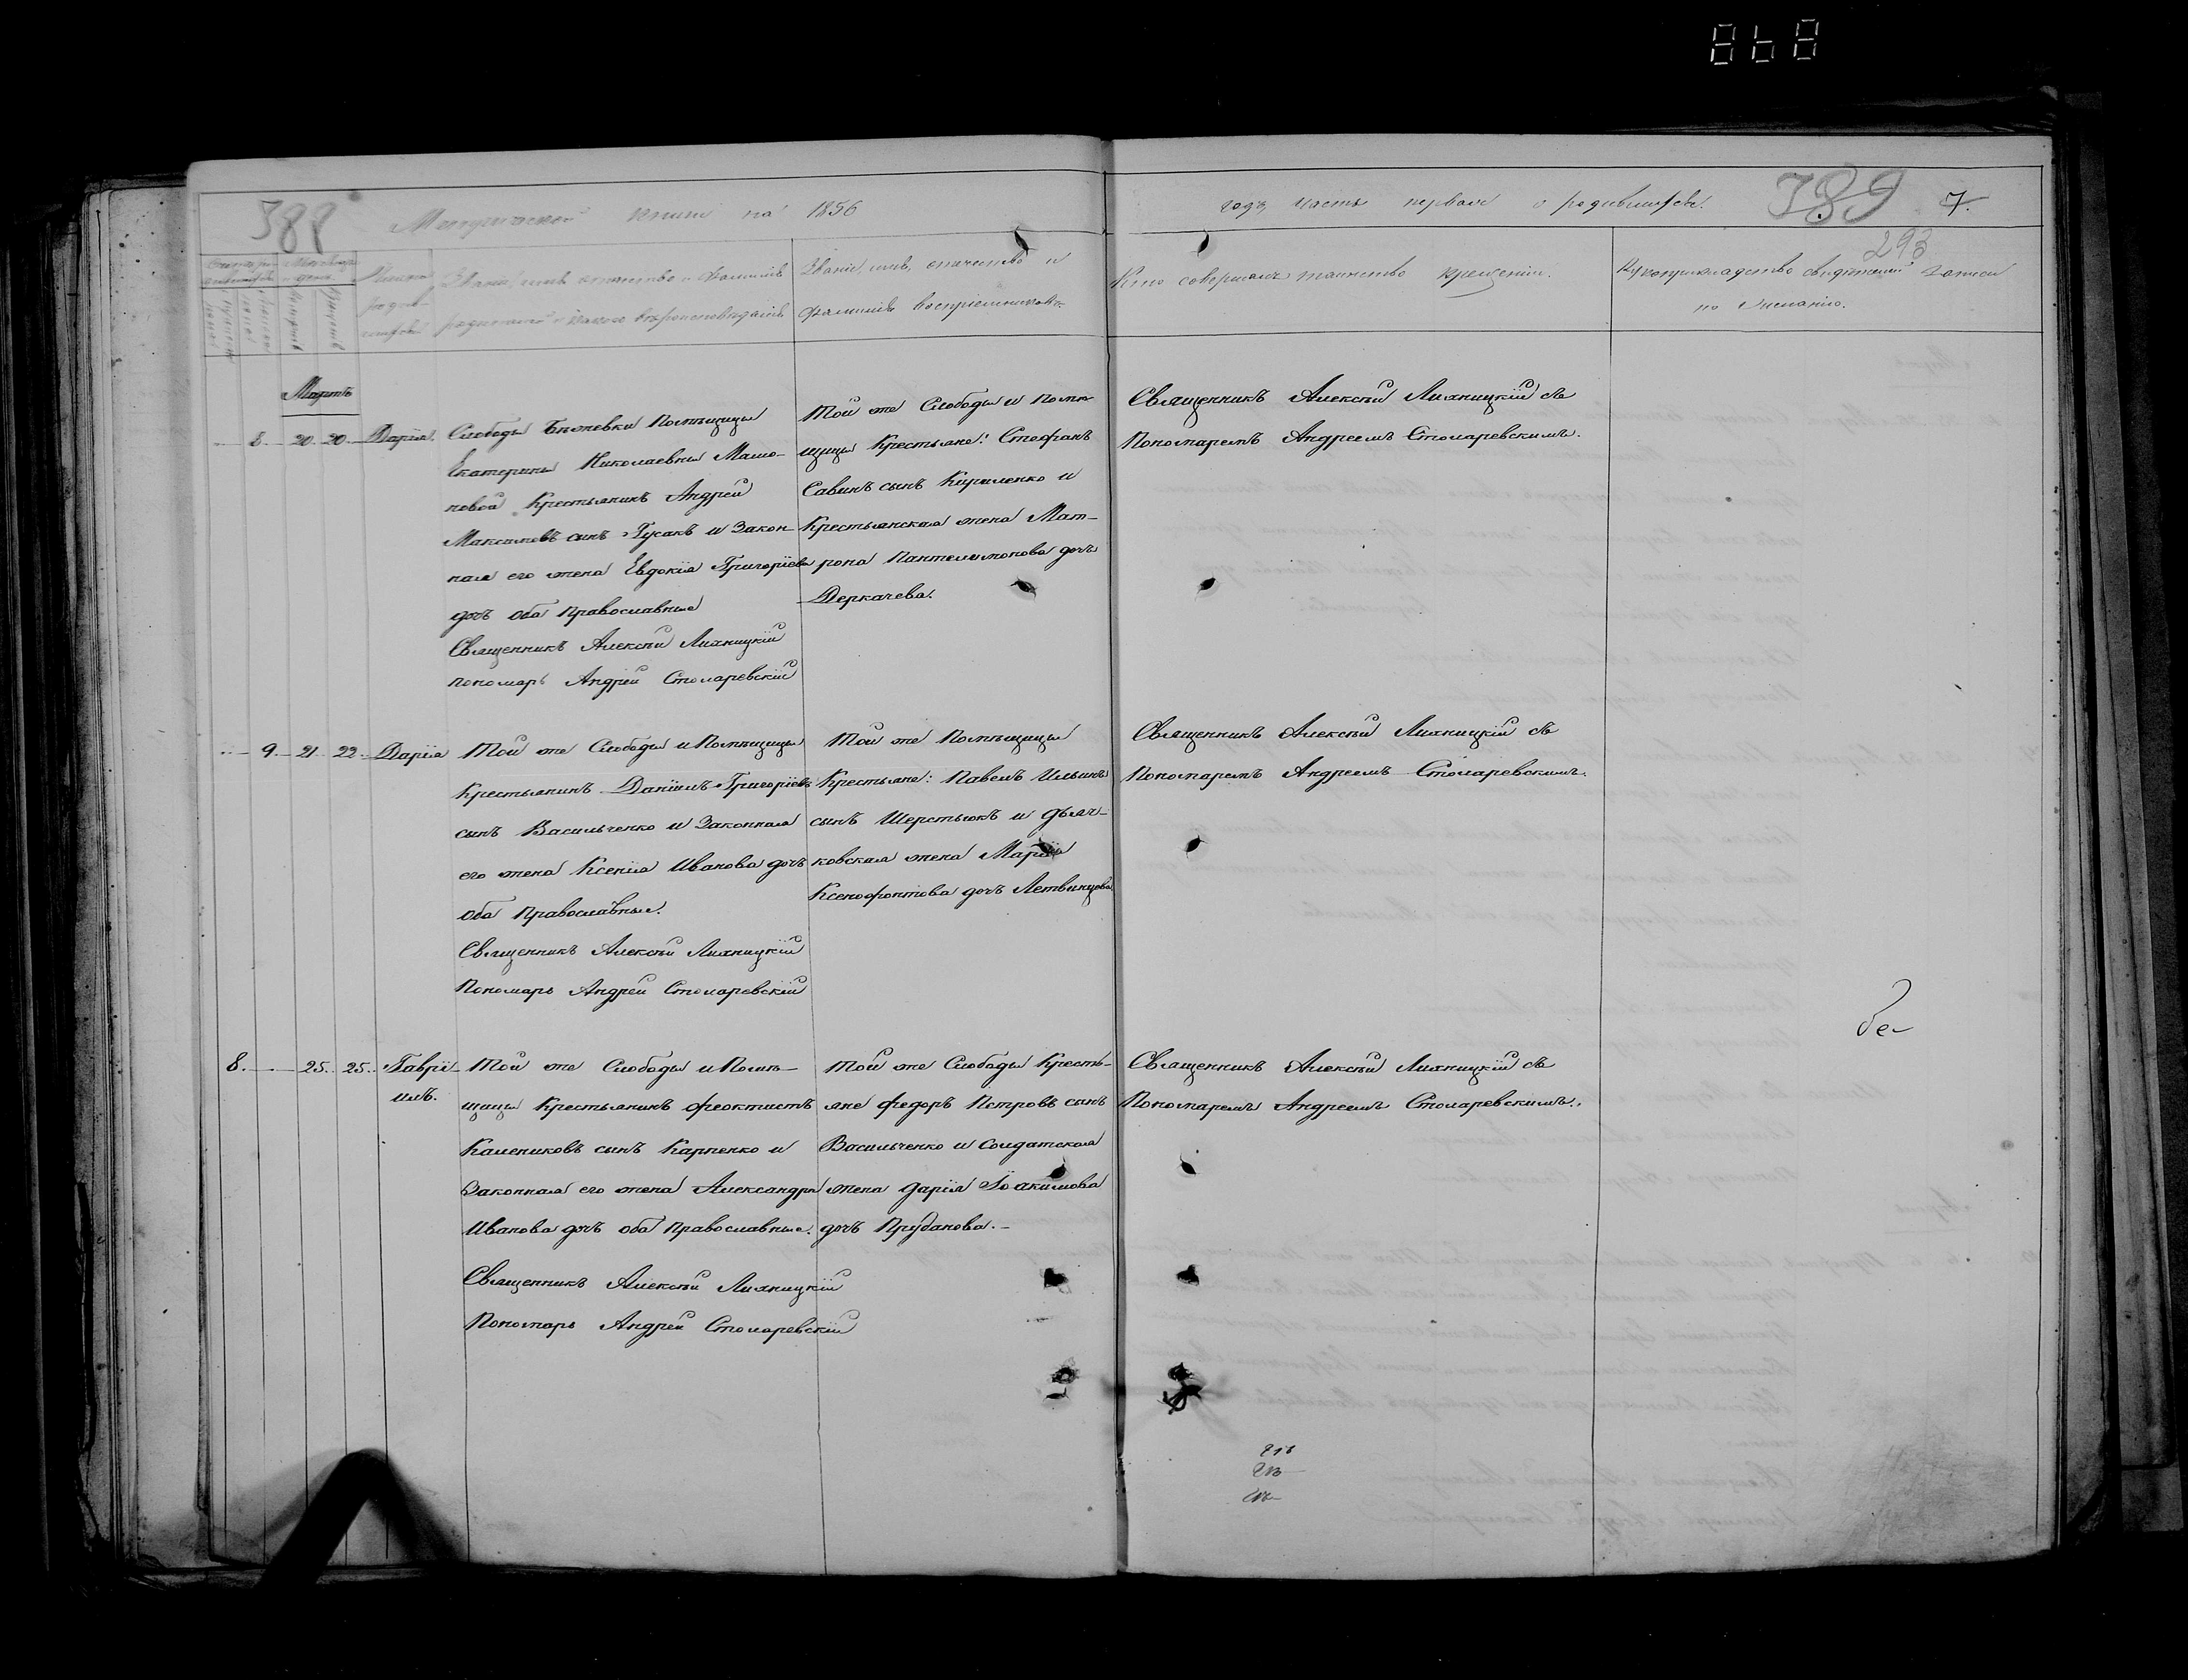 868
388 Метрической книги на 1856
годъ, часть первая о родившихся. 389 7.
293
Счетъ ро-
дившихся
Месяцъ
и день
мужеска
женска
рожденія
крещенія
Имена
родив-
шихся
Званіе, имя, отчество и фамилія
родителей и какого вѣроисповѣданія
Званіе, имя, отчество и
фамилія воспріемниковъ
Кто совершалъ таинство крещенія.
Рукоприкладство свидѣтелей записи
по желанію.
Мартъ
8. 20. 20. Дарія.
Слободы Помѣщицы
Екатерины Николаевны Машо-
новой Крестьянинъ Андрей
Максимовъ сынъ Гусакъ и Закон-
ная его жена Евдокія Григоріева
дочь оба Православные
Священникъ Алексѣй Лихницкій
пономарь Андрей Столаревскій
Той же Слободы и Помѣ-
щицы Крестьяне: Стефанъ
Савинъ сынъ Кириленко и
Крестьянская жена Мат-
рона Пантелимонова дочь
Деркачева.
Священникъ Алексѣй Лихницкій съ
Пономаремъ Андреемъ Столаревскимъ.
9. 21. 22. Дарія
Той же Слободы и Помѣщицы
Крестьянинъ Даніилъ Григоріевъ
сынъ Васильченко и Законная
его жена Ксенія Иванова дочь
оба Православные.
Священникъ Алексѣй Лихницкій
Пономарь Андрей Столаревскій
Той же Помѣщицы
Крестьяне: Павелъ Ильинъ
сынъ Шерстюкъ и дьяч-
ковская жена Марія
Ксенофонтова дочь Летвинцова
Священникъ Алексѣй Лихницкій съ
Пономаремъ Андреемъ Столаревскимъ.
8. 25. 25. Гаврі-
илъ.
Той же Слободы и Помѣ-
щицы Крестьянинъ Феоктистъ
Калениковъ сынъ Карпенко и
Законная его жена Александра
Иванова дочь оба Православные.
Священникъ Алексѣй Лихницкій
Пономарь Андрей Столаревскій
Той же Слободы Кресть-
яне Федоръ Петровъ сынъ
Васильченко и Солдатская
жена Дарія Іоакимова
дочь Прубанова.
Священникъ Алексѣй Лихницкій съ
Пономаремъ Андреемъ Столаревскимъ.